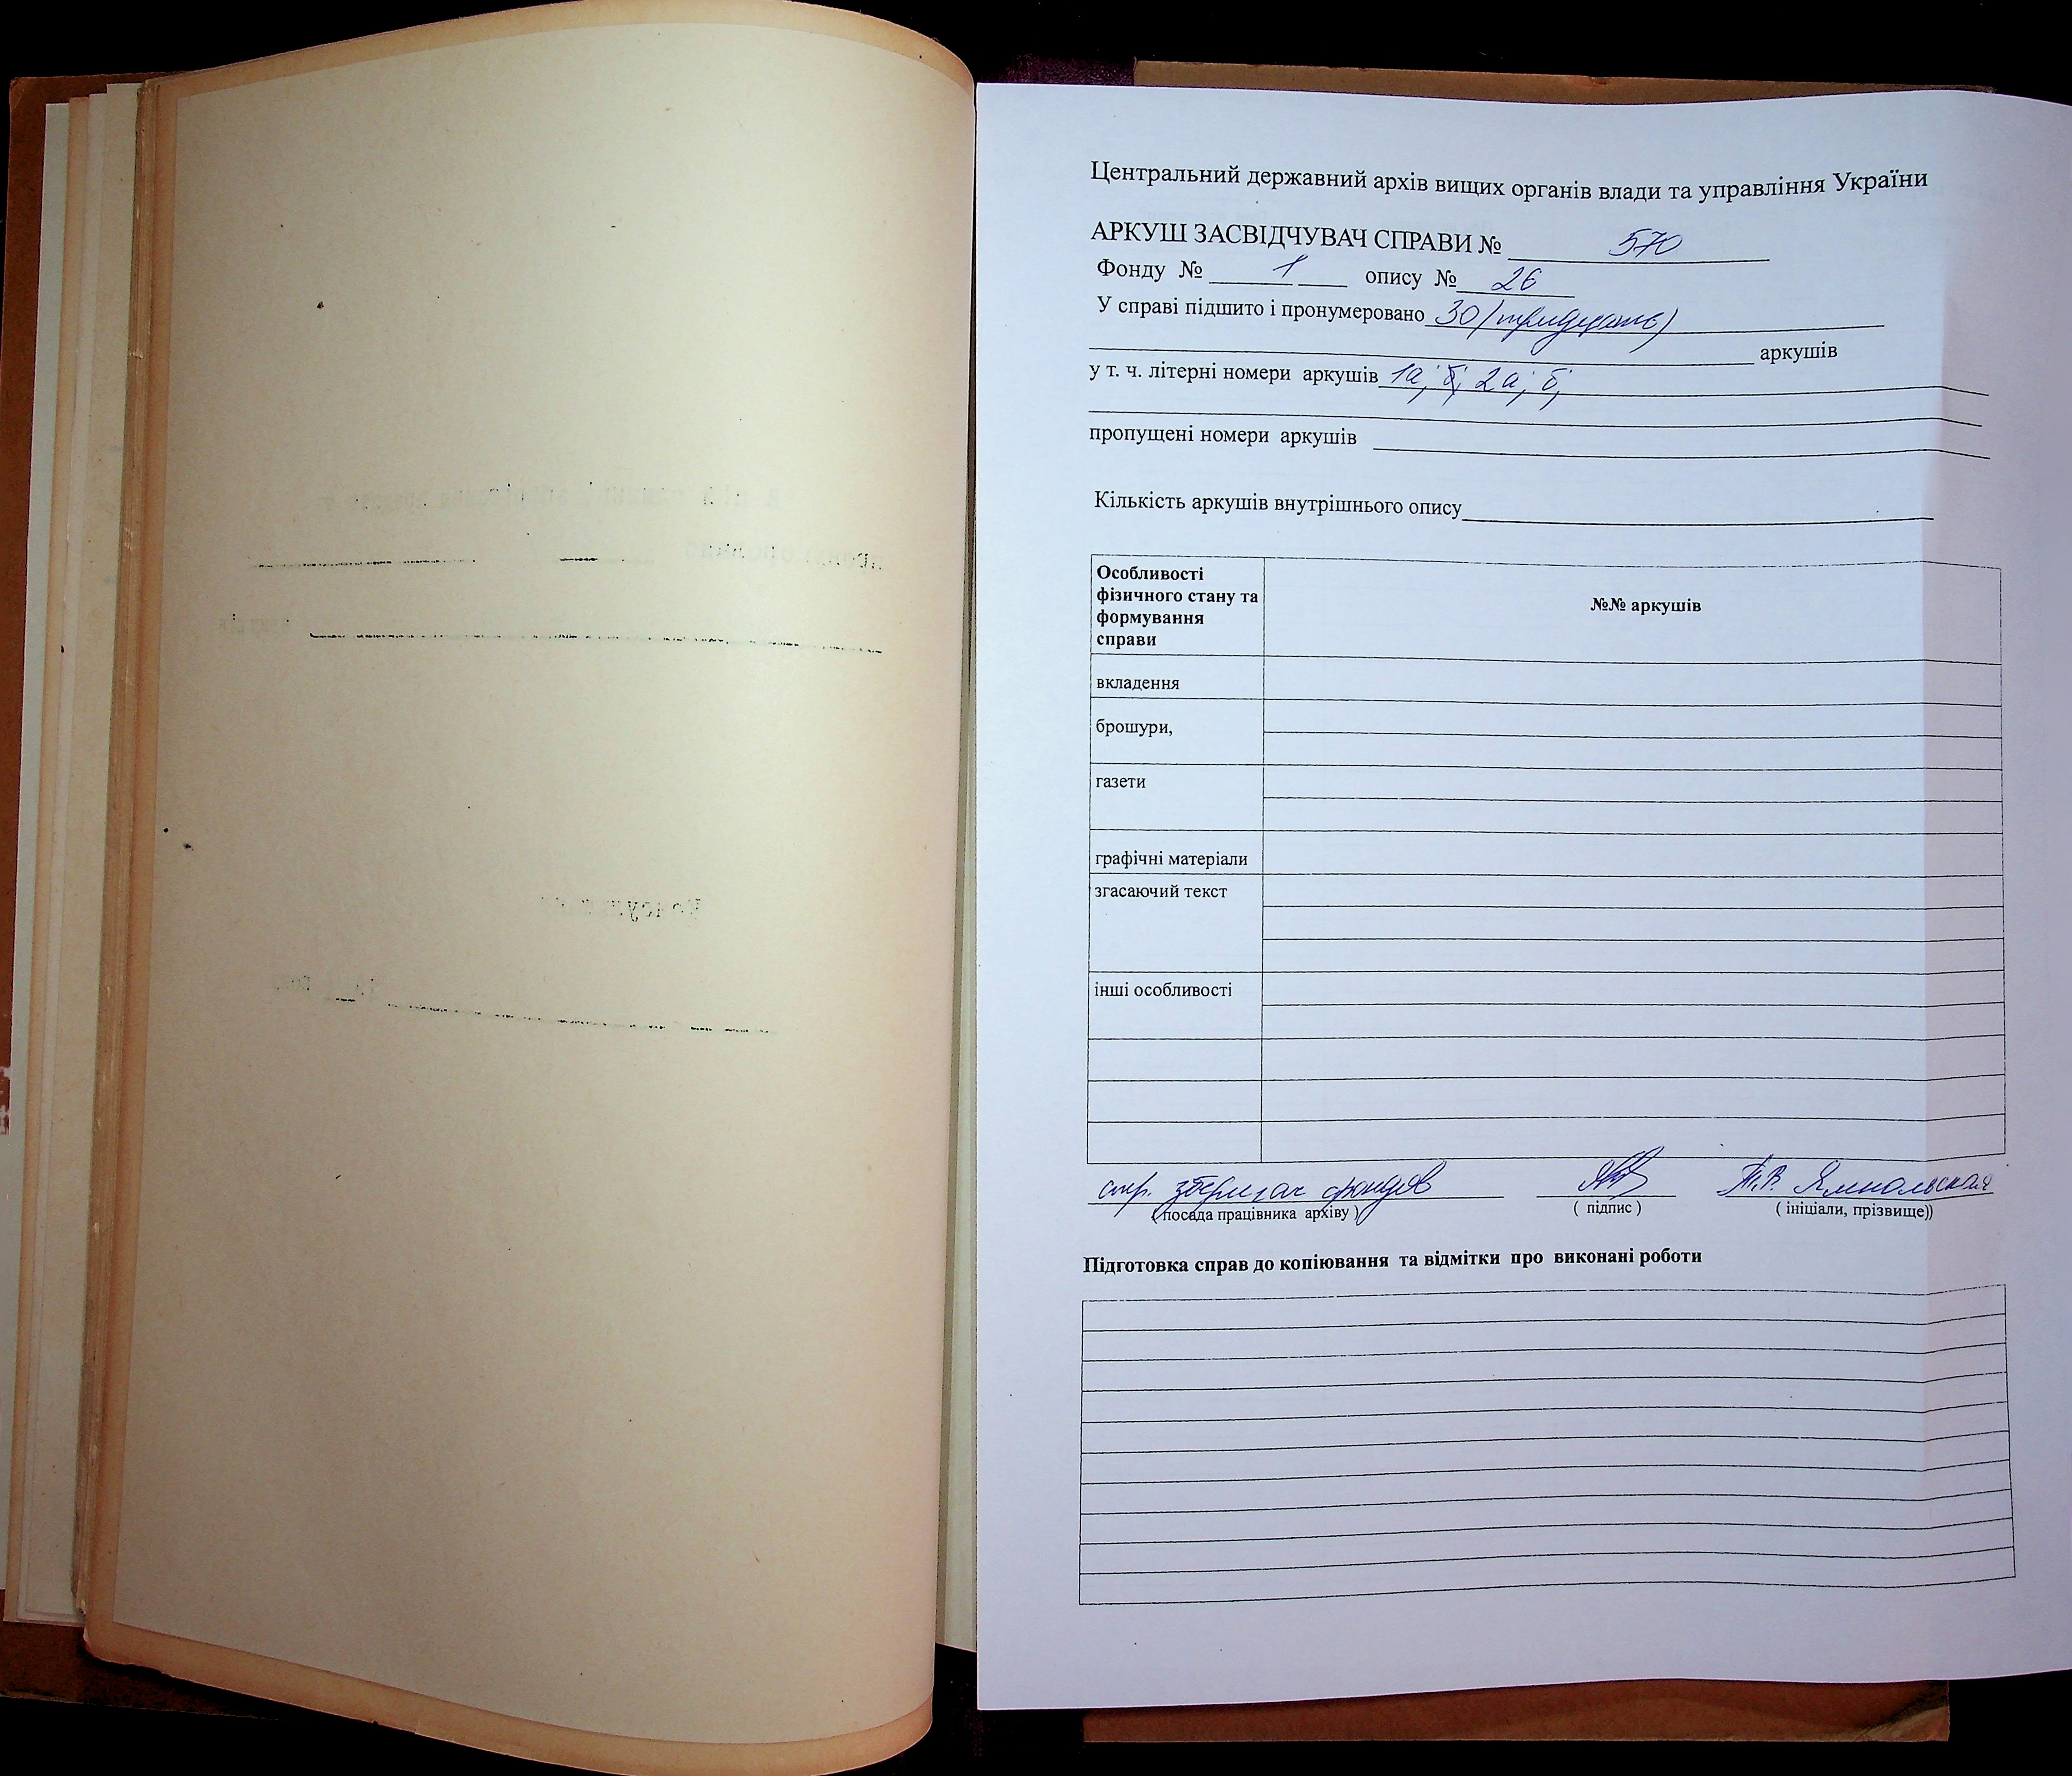 Центральний державний архів вищих органів влади та управління України
АРКУШ ЗАСВІДЧУВАЧ СПРАВИ № 570
Фонду № 1 опису № 26
У справі підшито і пронумеровано 30 (тридцять)
аркушів
у т. ч. літерні номери аркушів 1а; б; 2а; б;
пропущені номери аркушів
Кількість аркушів внутрішнього опису
Особливості фізичного стану та формування справи
№№ аркушів
вкладення
брошури,
газети
графічні матеріали
згасаючий текст
інші особливості
зберігач фондів
Т.В.
( посада працівника архіву )
( підпис )
( ініціали, прізвище))
Підготовка справ до копіювання та відмітки про виконані роботи